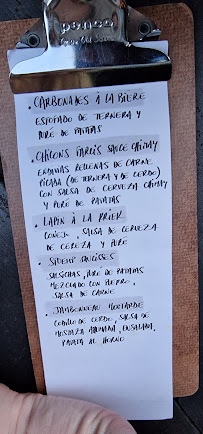 . CARBONADES À LA BIÈRE
ESTOFADO DE TERNERA Y
PURÉ DE PATATAS
. CHICONS FARCIS SAUCE CHIMAY
ENDIVIAS RELLENAS DE CARNE
PICADA (DE TERNERA Y DE CERDO)
CON SALSA DE CERVEZA CHIMAY
Y PURÉ DE PATATAS
. LAPIN À LA KRIEK
CONEJO, SALSA DE CERVEZA
DE CEREZA Y PURÉ
. STOEMP SAUCISSES
SALCHICHAS, PURÉ DE PATATAS
MEZCLADO CON PUERRO,
SALSA DE CARNE
. JAMBONNEAU MOUTARDE
CODILLO DE CERDO, SALSA DE
MOSTAZA, ENSALADA,
PATATA AL HORNO